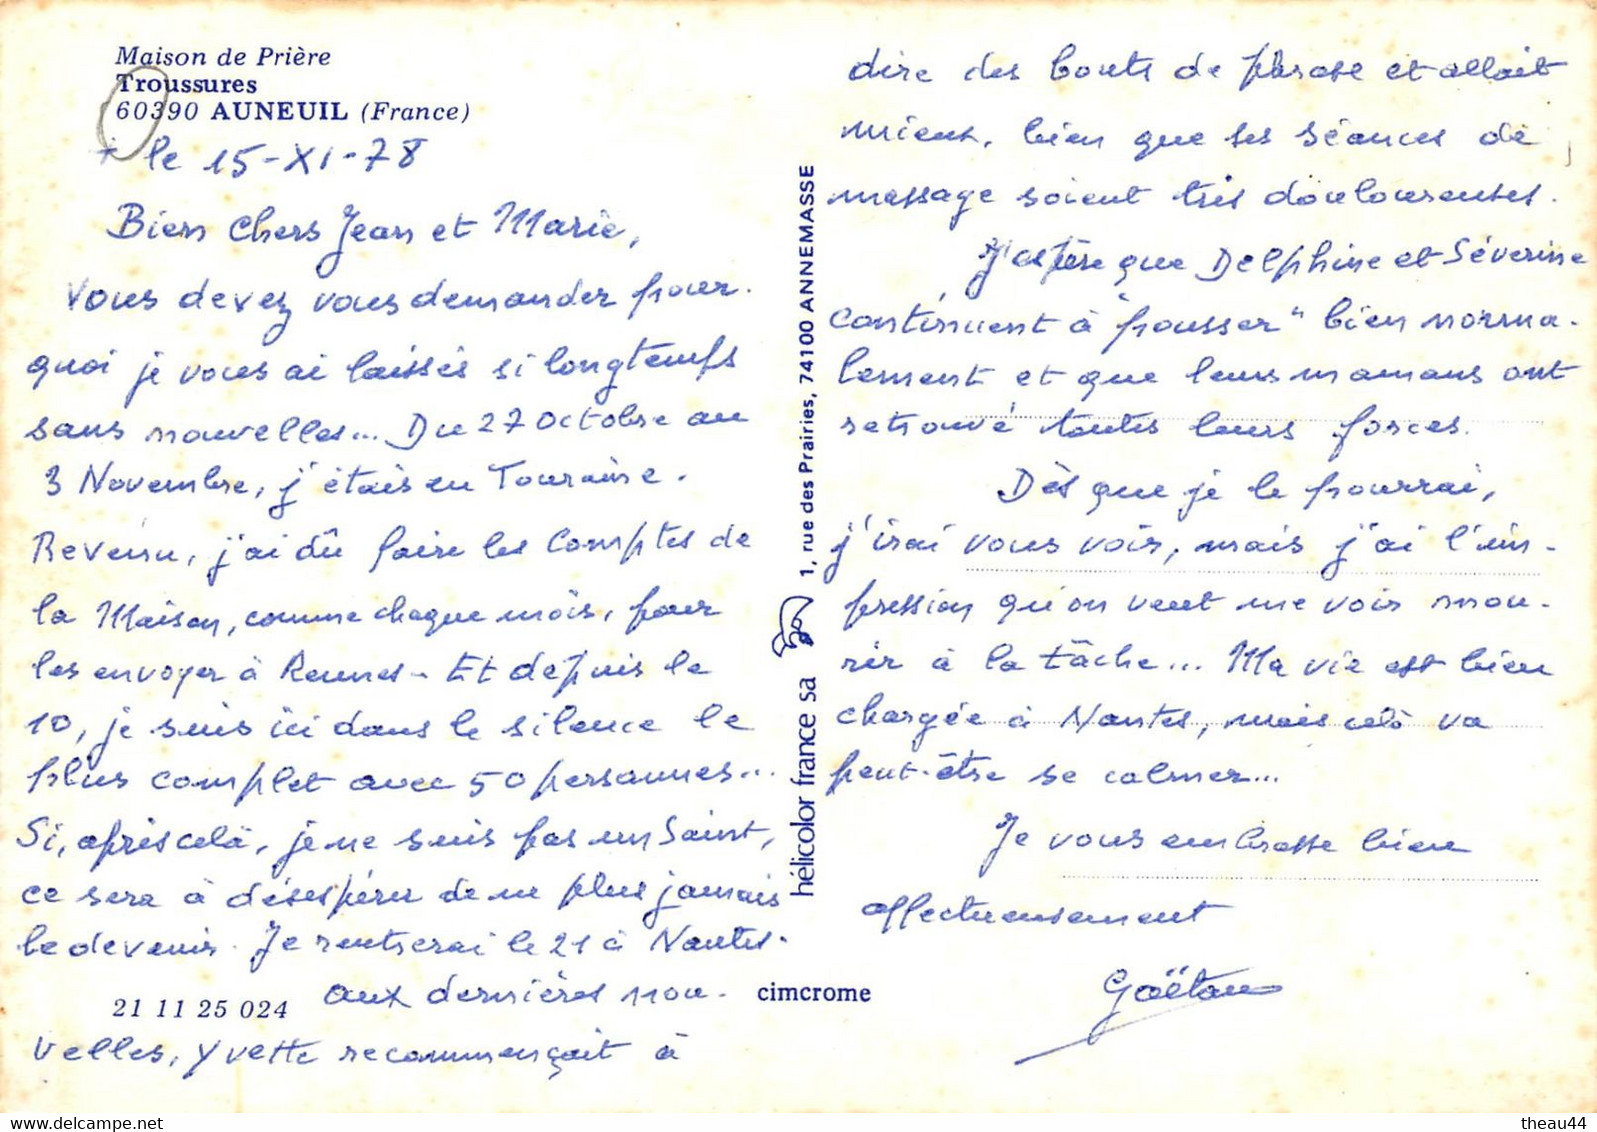 Maison de Prière
Troussures
60390 AUNEUIL (France)
+ le 15-XI-78
Bien chers Jean et Marie,
Vous devez vous demander pour-
quoi je vous ai laissés si longtemps
sans nouvelles... Du 27 Octobre au
3 Novembre, j'étais en Touraine.
Revenu, j'ai dû faire les comptes de
la Maison, comme chaque mois, pour
les envoyer à Rennes - Et depuis le
10, je suis ici dans le silence le
plus complet avec 50 personnes...
Si, après celà, je ne suis pas un Saint,
ce sera à désespérer de ne plus jamais
le devenir. Je rentrerai le 21 à Nantes.
Aux dernières nou-
velles, Yvette recommençait à
21 11 25 024
cimcrome
hélicolor france sa 1, rue des Prairies, 74100 ANNEMASSE
dire des bouts de phrase et allait
mieux, bien que ses séances de
massage soient très douloureuses.
J'espère que Delphine et Séverine
continuent à "pousser" bien norma-
lement et que leurs mamans ont
retrouvé toutes leurs forces.
Dès que je le pourrai,
j'irai vous voir, mais j'ai l'im-
pression qu'on veut me voir mou-
rir à la tâche... Ma vie est bien
chargée à Nantes, mais celà va
peut-être se calmer...
Je vous embrasse bien
affectueusement
Gaëtan
www.delcampe.net
theau44